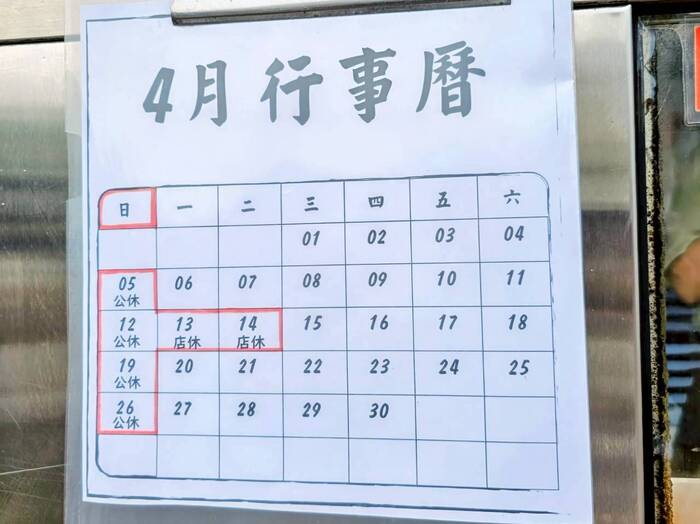 4月行事曆
日 一 二 三 四 五 六
01 02 03 04
05 06 07 08 09 10 11
公休
12 13 14 15 16 17 18
公休 店休 店休
19 20 21 22 23 24 25
公休
26 27 28 29 30
公休